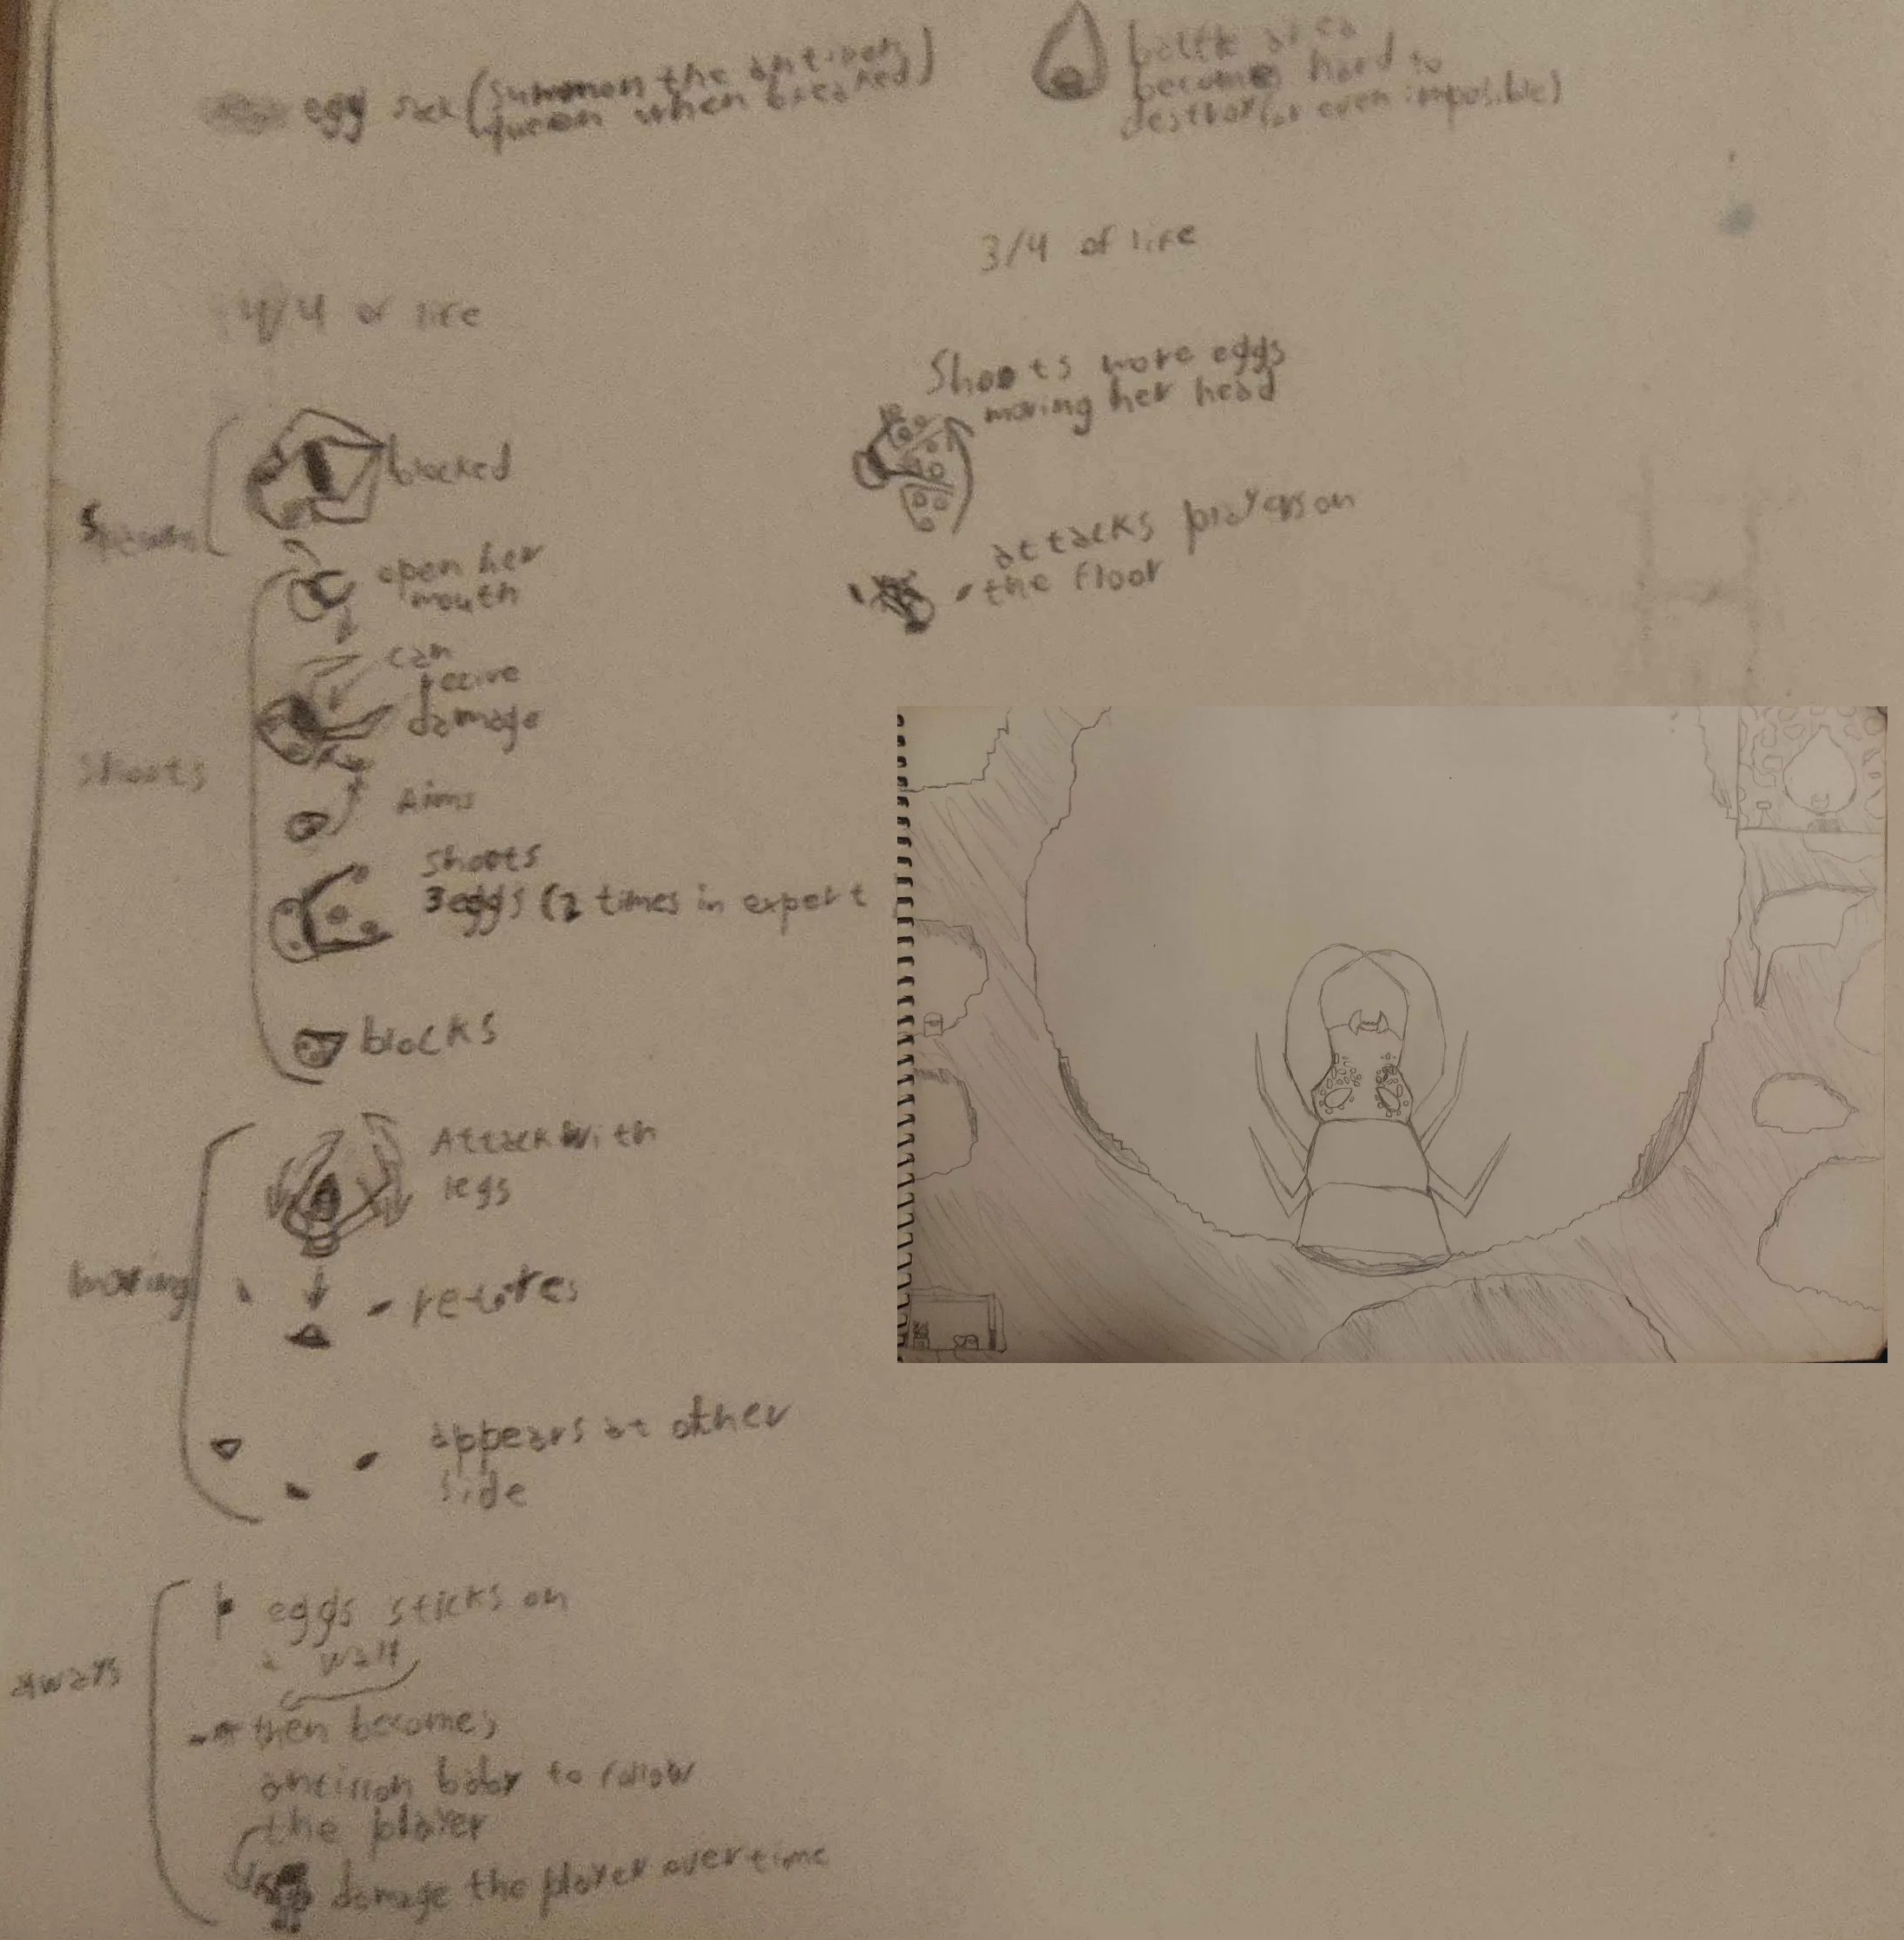 egg sack (summon the antlion
queen when breaked)
battle area
becomes hard to
destroy (or even imposible)
4/4 of life
3/4 of life
Spawn
blocked
Shoots
open her
mouth
can
recive
damage
Aims
shoots
3 eggs (2 times in expert
blocks
moving
Attack with
legs
appears at other
side
always
eggs sticks on
a wall
then becomes
antlion baby to follow
the player
damage the player over time
Shoots more eggs
moving her head
attacks player on
the floor